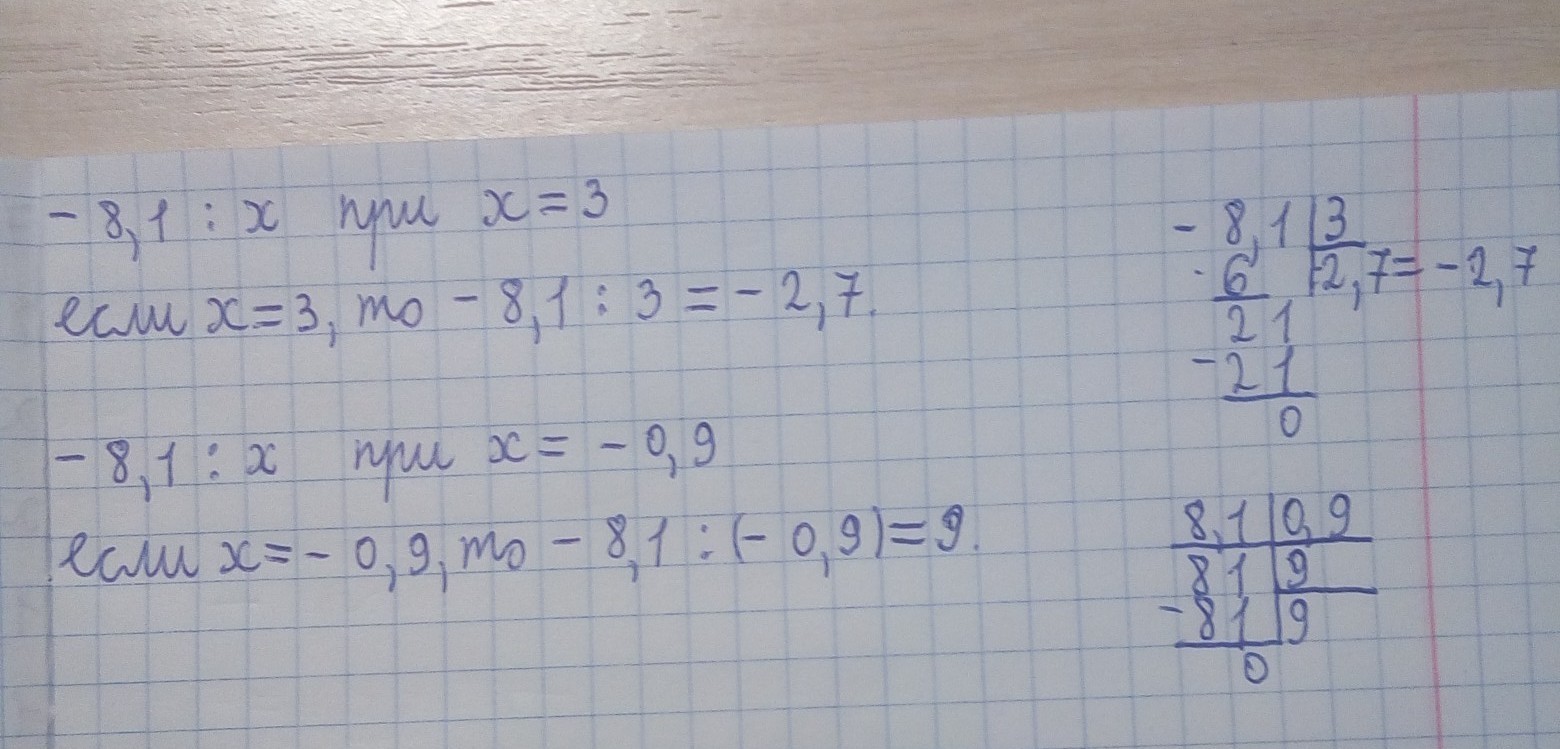 -8,1 : x при x = 3
если x = 3, то -8,1 : 3 = -2,7.
-8,1 : x при x = -0,9
если x = -0,9, то -8,1 : (-0,9) = 9.
- 8,1 | 3
- 6 | 2,7 = -2,7
21
-21
0
8,1 | 0,9
81 | 9
-81 | 9
0